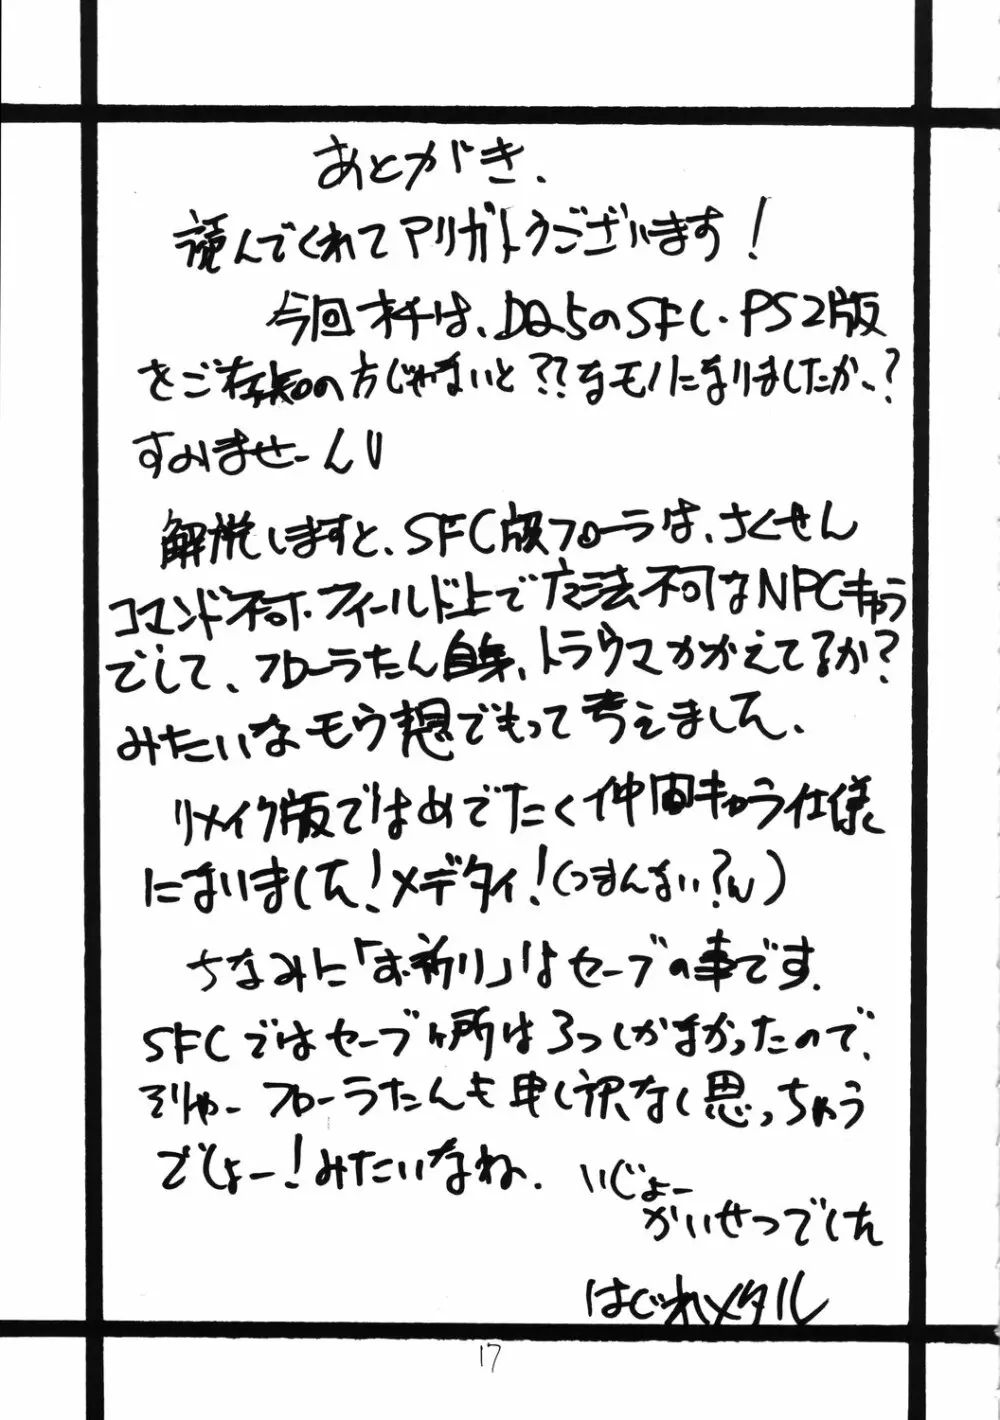 あとがき、
読んでくれてアリガトうございます！
今回オチは、DQ5のSFC・PS2版
をご存知の方じゃないと??なモノになりましたか、?
すみませーん
解説しますと、SFC版フローラは、さくせん
コマンド不可・フィールド上で魔法不可なNPCキャラ
でして、フローラたん自身、トラウマかかえてるか?
みたいなモウ想でもって考えました、
リメイク版ではめでたく仲間キャラ仕様
になりました!メデタイ!(つまんない?ん)
ちなみに「お祈り」はセーブの事です.
SFCではセーブヶ所は3つしかなかったので、
そりゃーフローラたんも申し訳なく思っちゃう
でしょー!みたいなね、
いじょー
かいせつでした
はぐれメタル
17